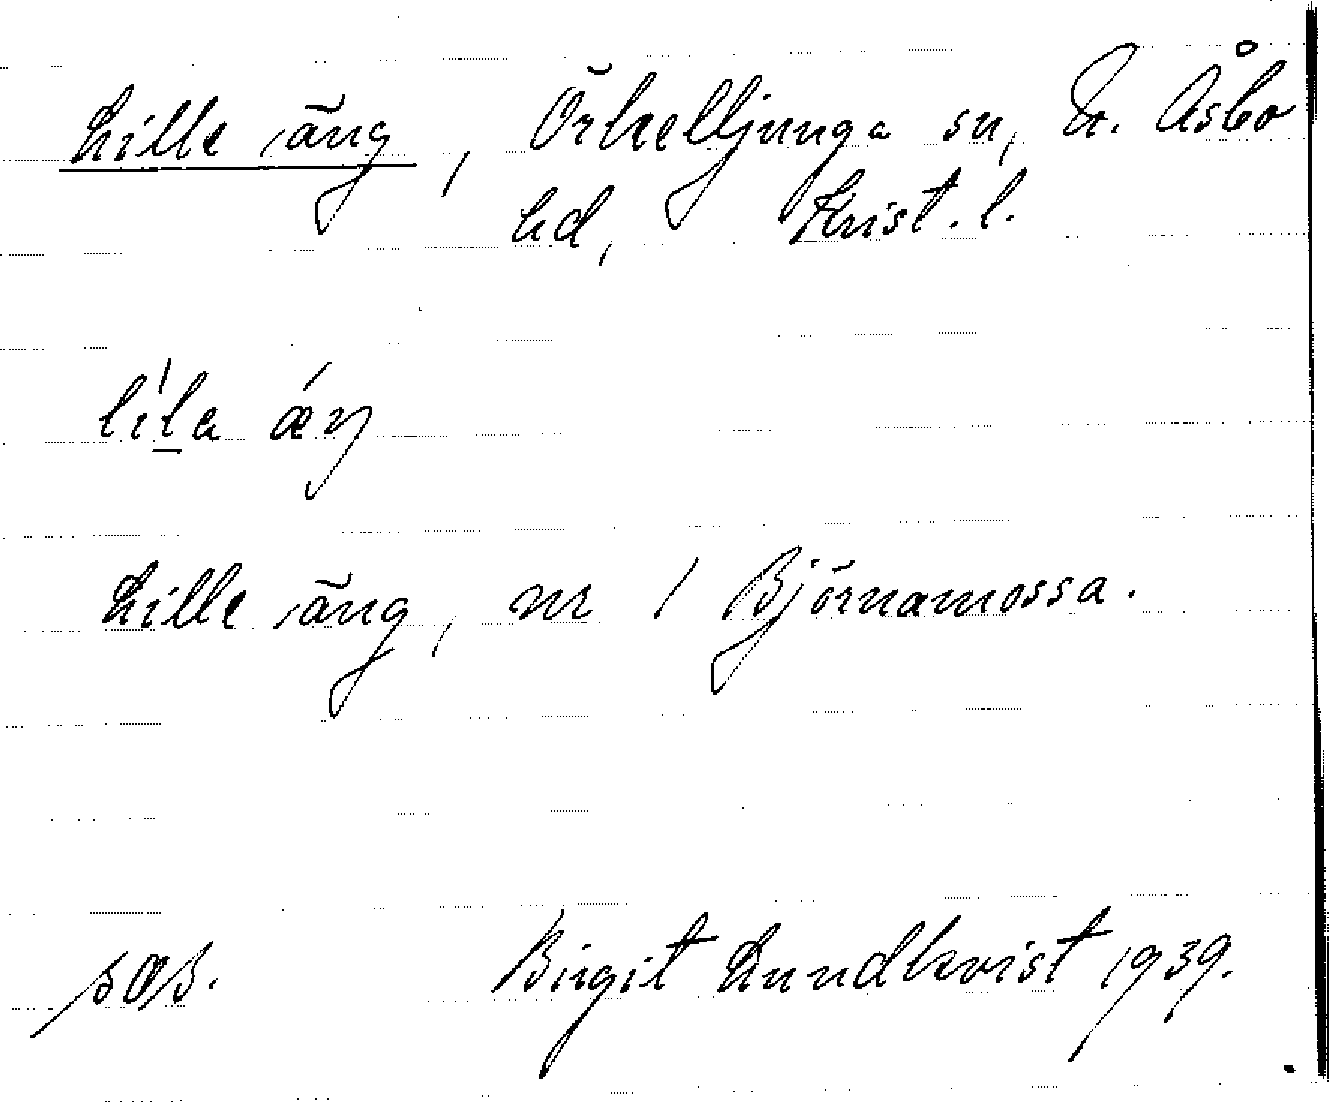 Lille äng, Örkelljunga sn, N. Åsbo
hd, Krist. l.
lila æŋ
Lille äng, nr 1 Björnamossa.
Birgit Lundkvist 1939.